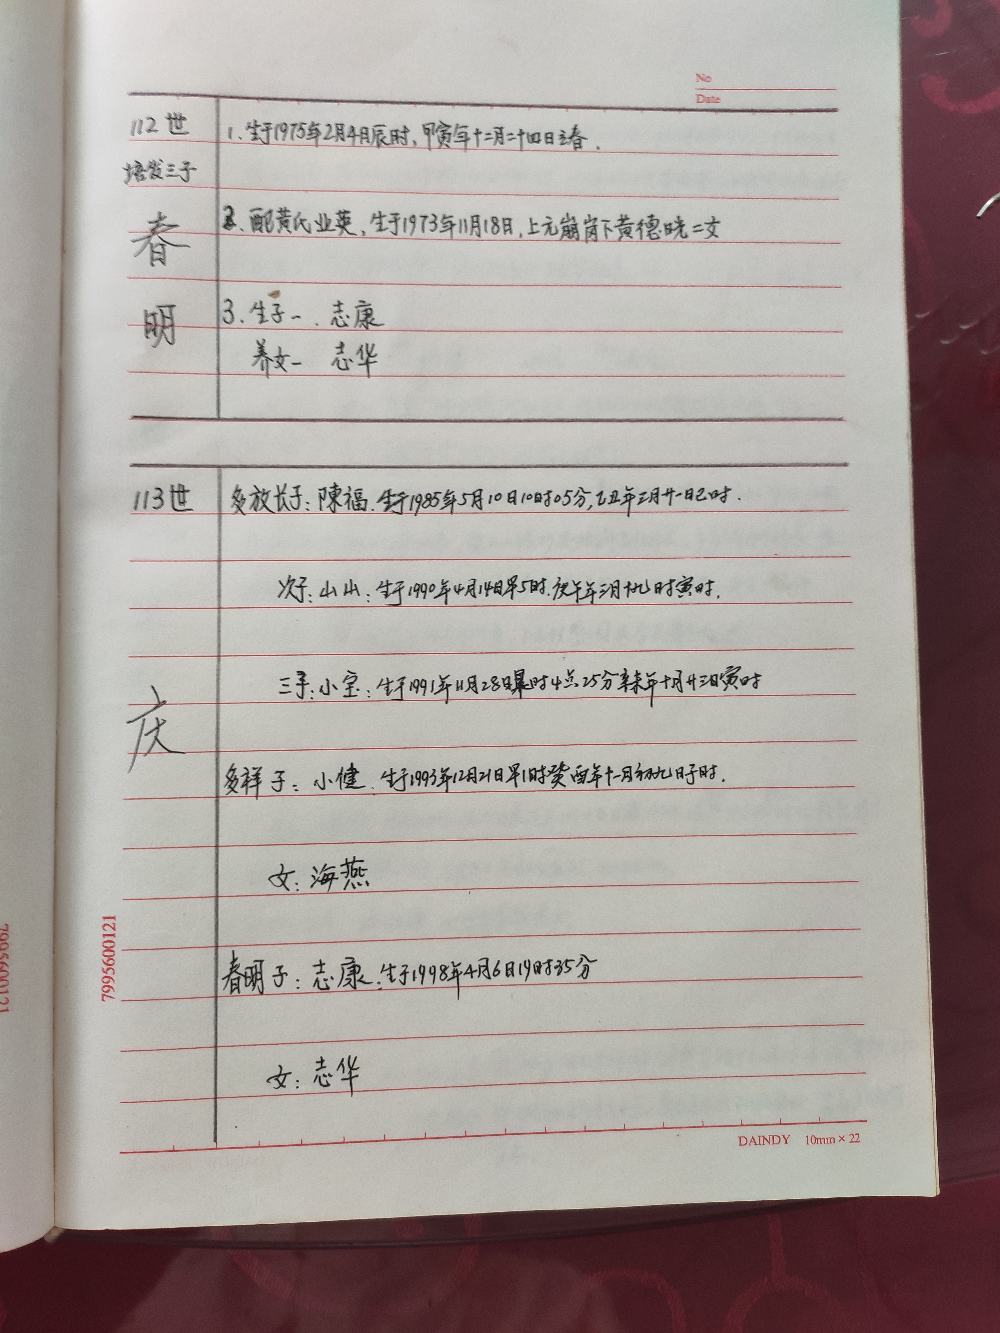 No
Date
112世
培发三子
春
明
1、生于1975年2月4日辰时，甲寅年十二月二十四日立春．
2、配黄氏业英，生于1973年11月18日，上元崩岗下黄德晄二女
3、生子一．志康
养女一 志华
113世
庆
多放长子：陳福．生于1985年5月10日10时05分，乙丑年三月廿一日巳时．
次子：山山：生于1990年4月14日早5时．庚午年三月十九时寅时．
三子：小宝：生于1991年11月28日早时4点25分辛未年十月廿三日寅时
多祥子：小健．生于1993年12月21日早1时癸酉年十一月初九日子时．
女：海燕
春明子：志康：生于1998年4月6日19时35分
女：志华
7995600121
7995600121
DAINDY 10mm × 22